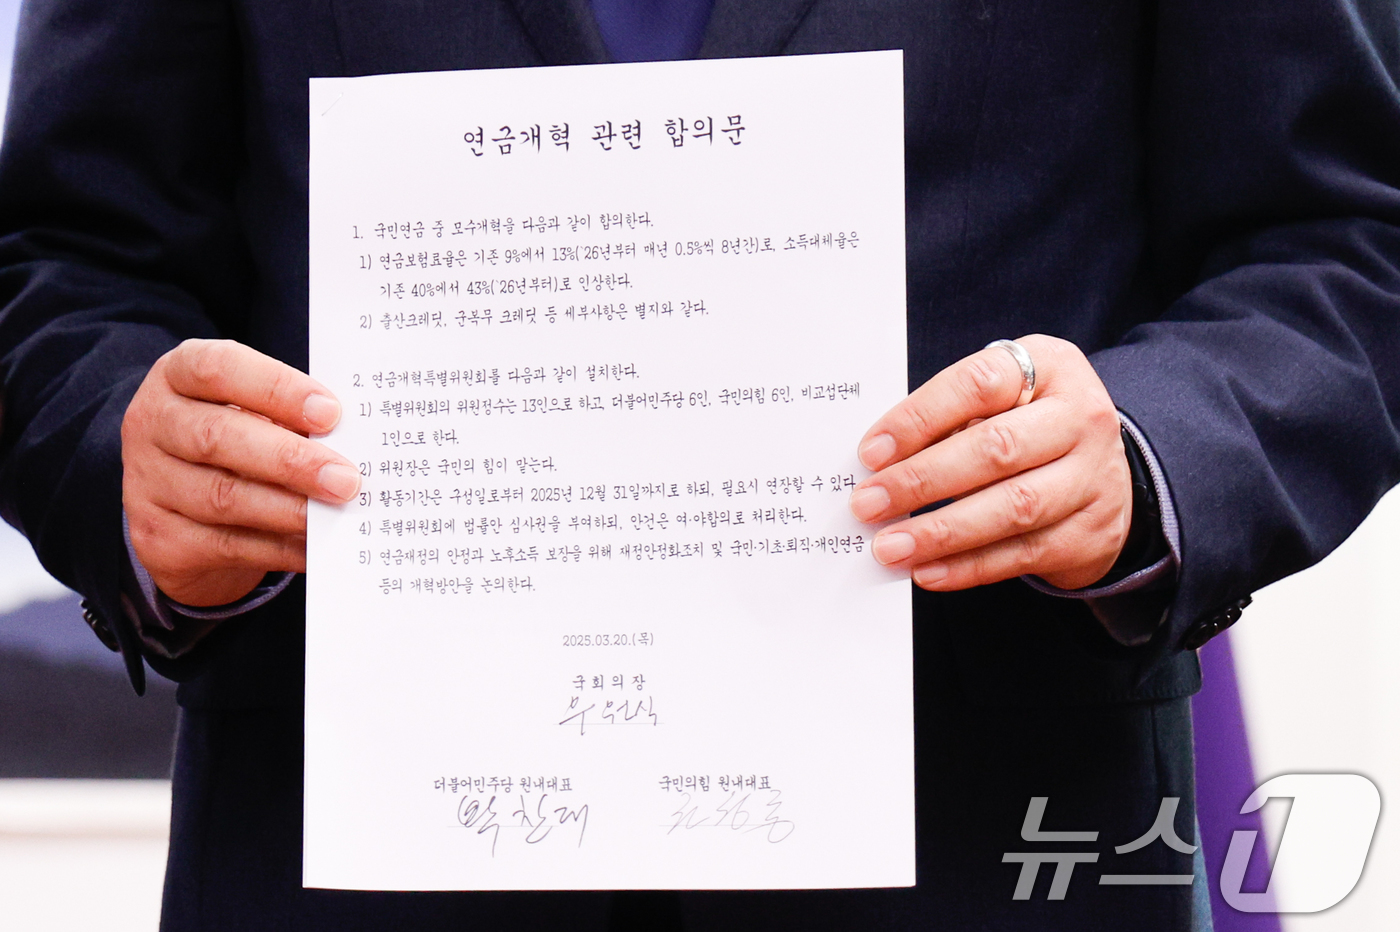 연금개혁 관련 합의문
1. 국민연금 중 모수개혁을 다음과 같이 합의한다.
1) 연금보험료율은 기존 9%에서 13%(`26년부터 매년 0.5%씩 8년간)로, 소득대체율은
기존 40%에서 43%(`26년부터)로 인상한다.
2) 출산크레딧, 군복무 크레딧 등 세부사항은 별지와 같다.
2. 연금개혁특별위원회를 다음과 같이 설치한다.
1) 특별위원회의 위원정수는 13인으로 하고, 더불어민주당 6인, 국민의힘 6인, 비교섭단체
1인으로 한다.
2) 위원장은 국민의 힘이 맡는다.
3) 활동기간은 구성일로부터 2025년 12월 31일까지로 하되, 필요시 연장할 수 있다
4) 특별위원회에 법률안 심사권을 부여하되, 안건은 여·야합의로 처리한다.
5) 연금재정의 안정과 노후소득 보장을 위해 재정안정화조치 및 국민·기초·퇴직·개인연금
등의 개혁방안을 논의한다.
2025.03.20.(목)
국회의장
우원식
더불어민주당 원내대표 국민의힘 원내대표
박찬대 권성동
뉴스1